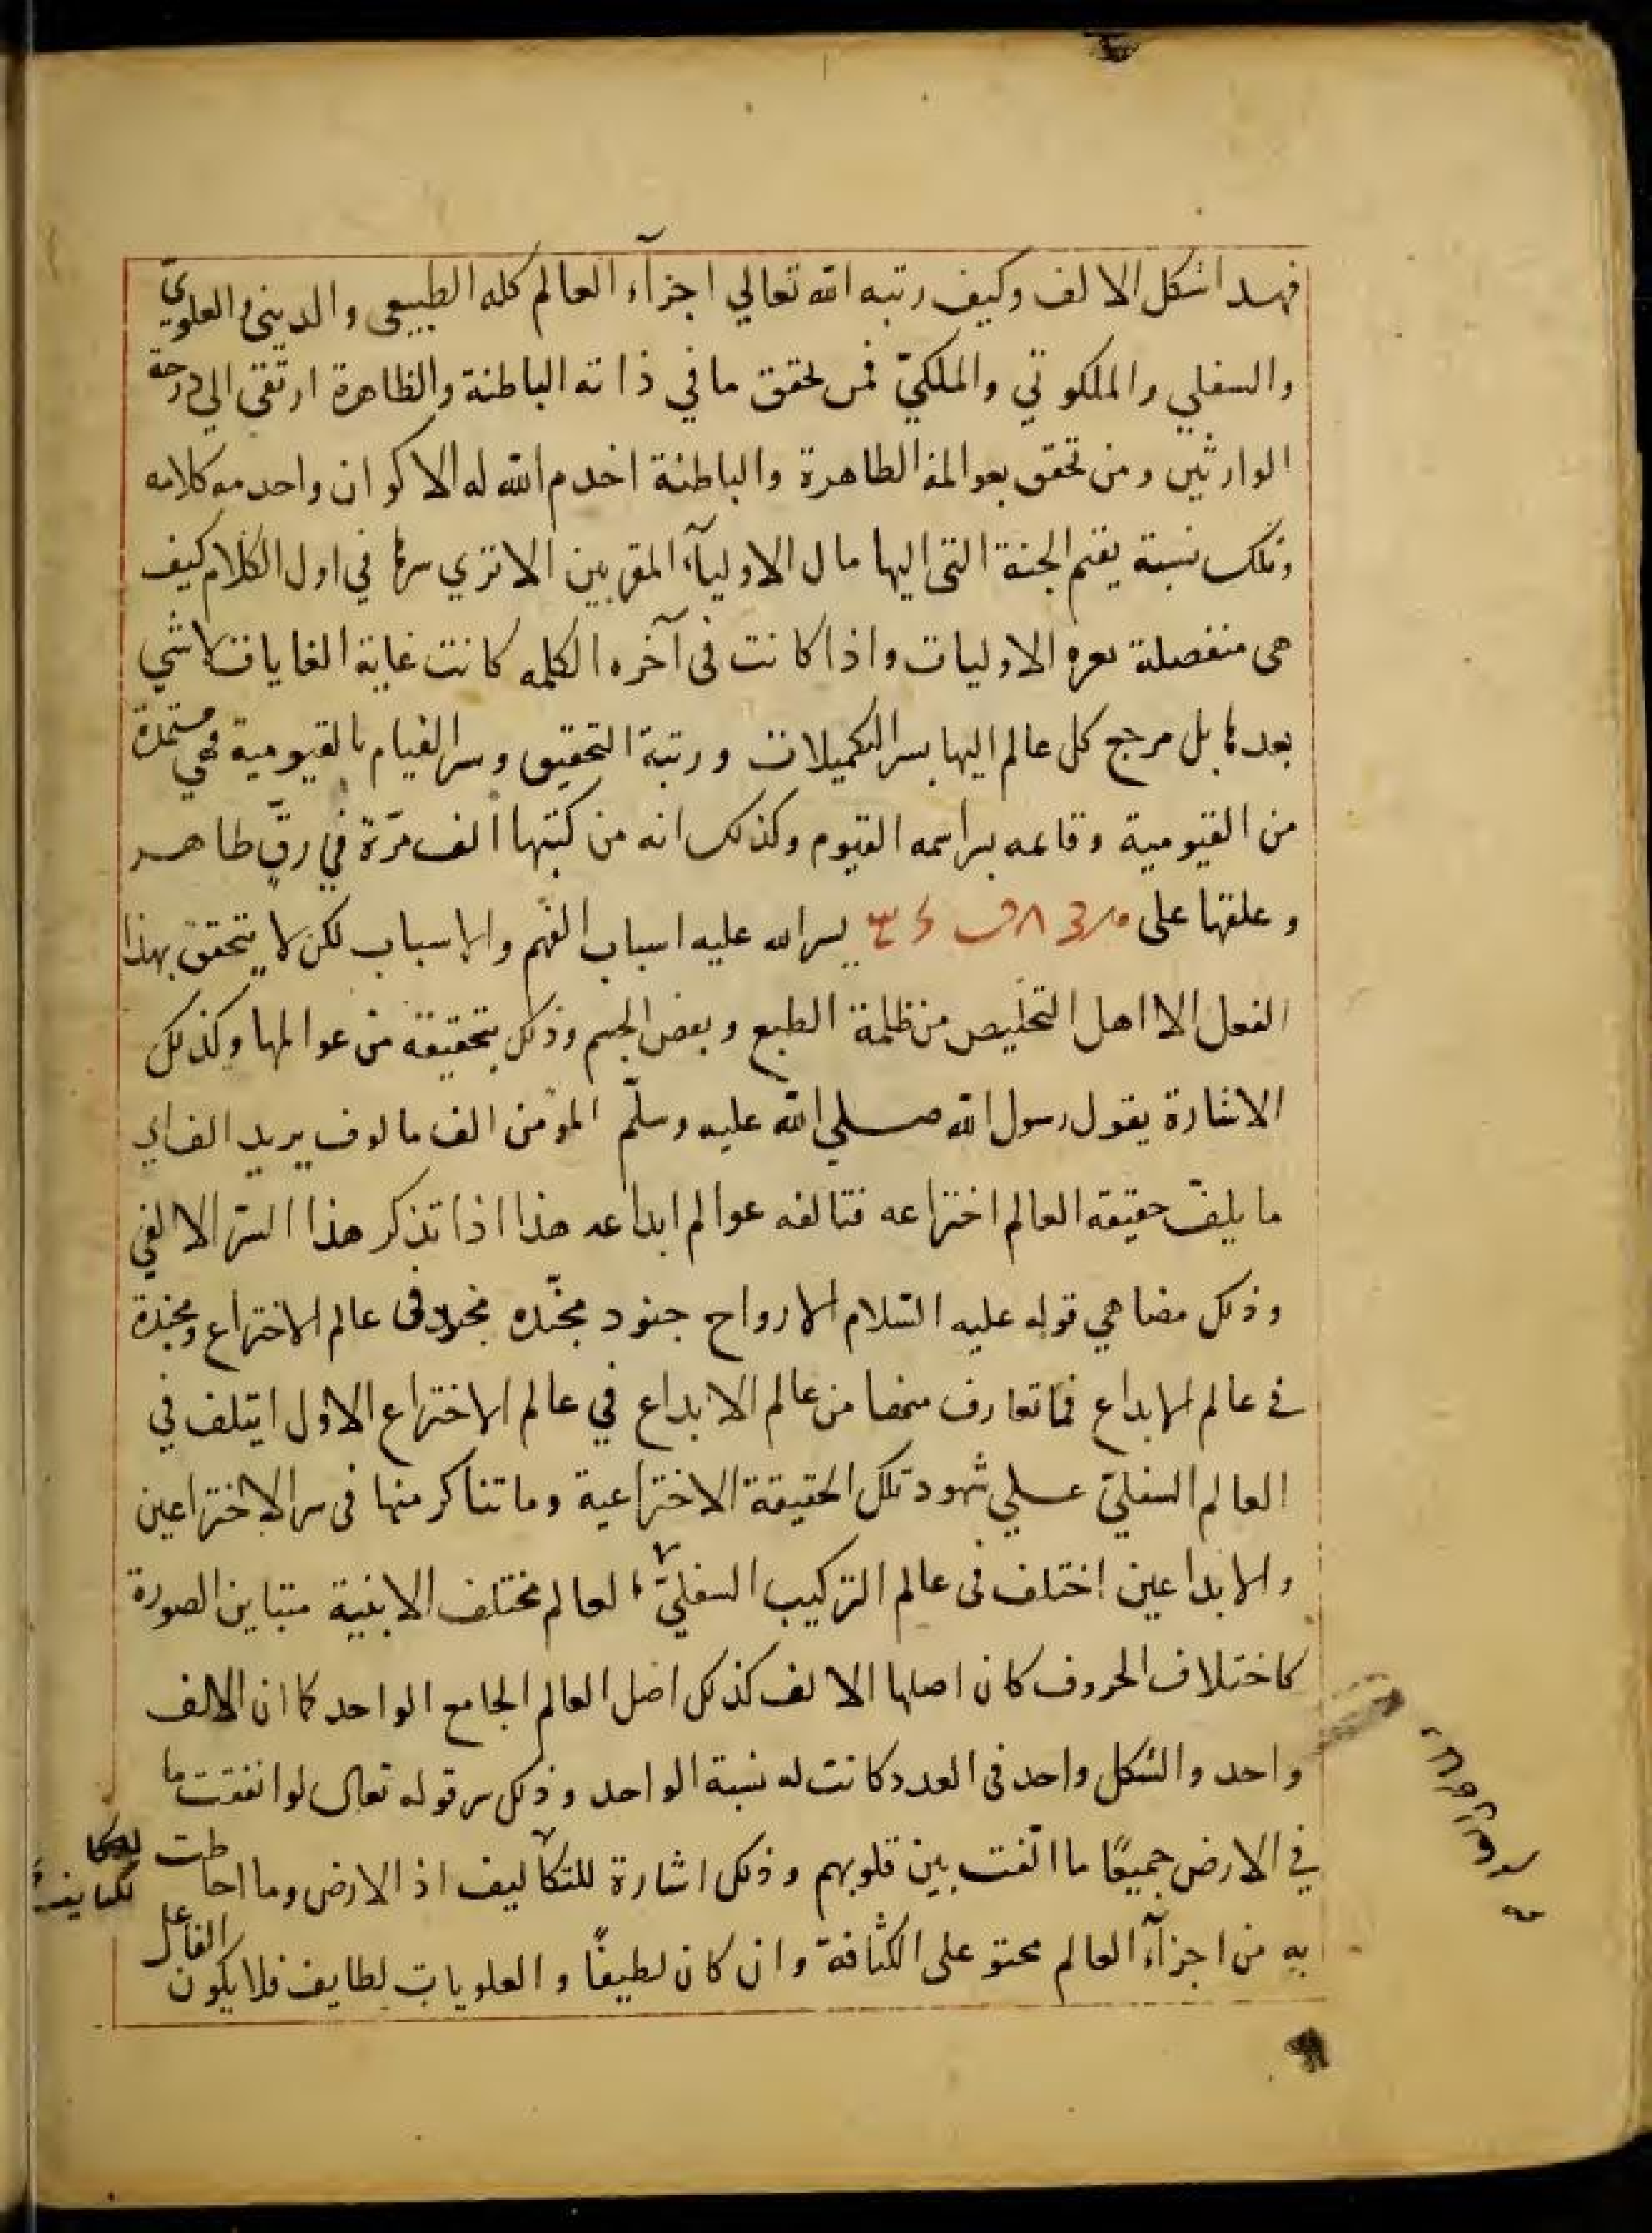 فهذا شكل الالف وكيف رتبه الله تعالي اجزآء العالم كله الطبيعى والدينى والعلويّ
والسفلي والملكوتي والملكيّ فمن تحقق ما في ذاته الباطنة والظاهرة ارتقى الي درجة
الوارثين ومن تحقق بعوالمه الظاهرة والباطنة اخدم الله له الاكوان واحد كلامه
وتلك نسبة الجنة التى اليها مال الاوليآء المقربين الا تري سرها في اول الكلام كيف
هى منفصلة الاوليات واذا كانت فى آخره الكلمه كانت غاية الغايات لا شي
بعدها بل مرجع كل عالم اليها بسر التكميلات ورتبة التحقيق وسر القيام بالقيومية فهي مستمدة
من القيومية وقائمه بسر اسمه القيوم وكذلك انه من كتبها الف مرّة في رقّ طاهر
وعلقها على يسر الله عليه اسباب الفهم والاسباب لكن لا يتحقق بهذا
الفعل الا اهل التخليص من ظلمة الطبع وبعض الجسم وذلك بتحقيقه من عوالمها وكذلك
الاشارة يقول رسول الله صلي الله عليه وسلّم المؤمن الف مالوف يريد الف اي
ما يلفّ حقيقه العالم اختراعه فتالفه عوالم ابداعه هذا اذا تذكر هذا السّر الالفي
وذلك مضاهي قوله عليه السّلام الارواح جنود مجنّده فى عالم الاختراع ومجندة
في عالم الابداع فما تعارف منها من عالم الابداع في عالم الاختراع الاول ايتلف في
العالم السفليّ علي شهود تلك الحقيقة الاختراعية وما تناكر منها فى سر الاختراعين
والابداعين اختلف فى عالم التركيب السفليّ العالم مختلف الابنية متباين الصورة
كاختلاف الحروف كان اصلها الالف كذلك اصل العالم الجامع الواحد كما ان الالف
واحد والشكل واحد فى العدد كانت له نسبة الواحد وذلك سر قوله تعالى لو انفقت ما
في الارض جميعًا ما الّفت بين قلوبهم وذلك اشارة للتكاليف اذ الارض وما احاطت
به من اجزآء العالم محتو على الكثافة وان كان لطيفًا والعلويات لطايف فلا يكون الفاعل